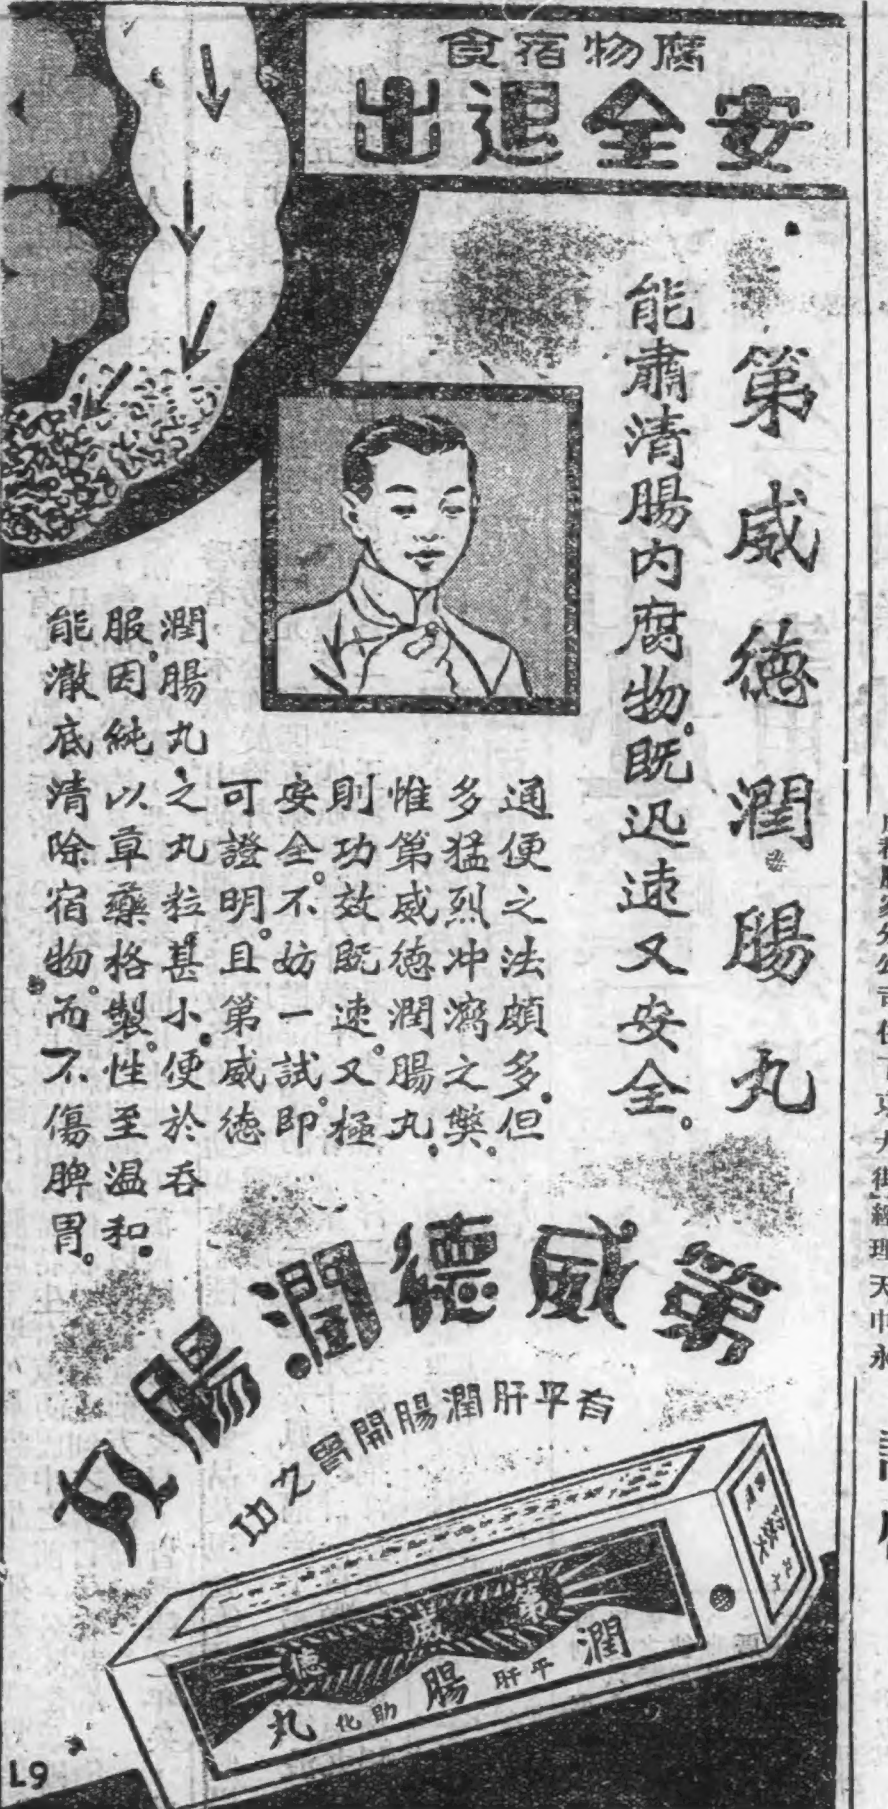 腐物宿食
安全退出
第威德潤腸丸
能肅清腸內腐物。既迅速又安全。
通便之法頗多。但
多猛烈冲瀉之弊。
惟第威德潤腸丸。
則功效既速。又極
安全。不妨一試。即
可證明。且第威德
潤腸丸之丸粒甚小。便於吞
服。因純以草藥格製。性至溫和。
能澈底清除宿物。而不傷脾胃。
第威德潤腸丸
有平肝潤腸開胃之功
第威德
潤腸丸
平肝
助化
L9